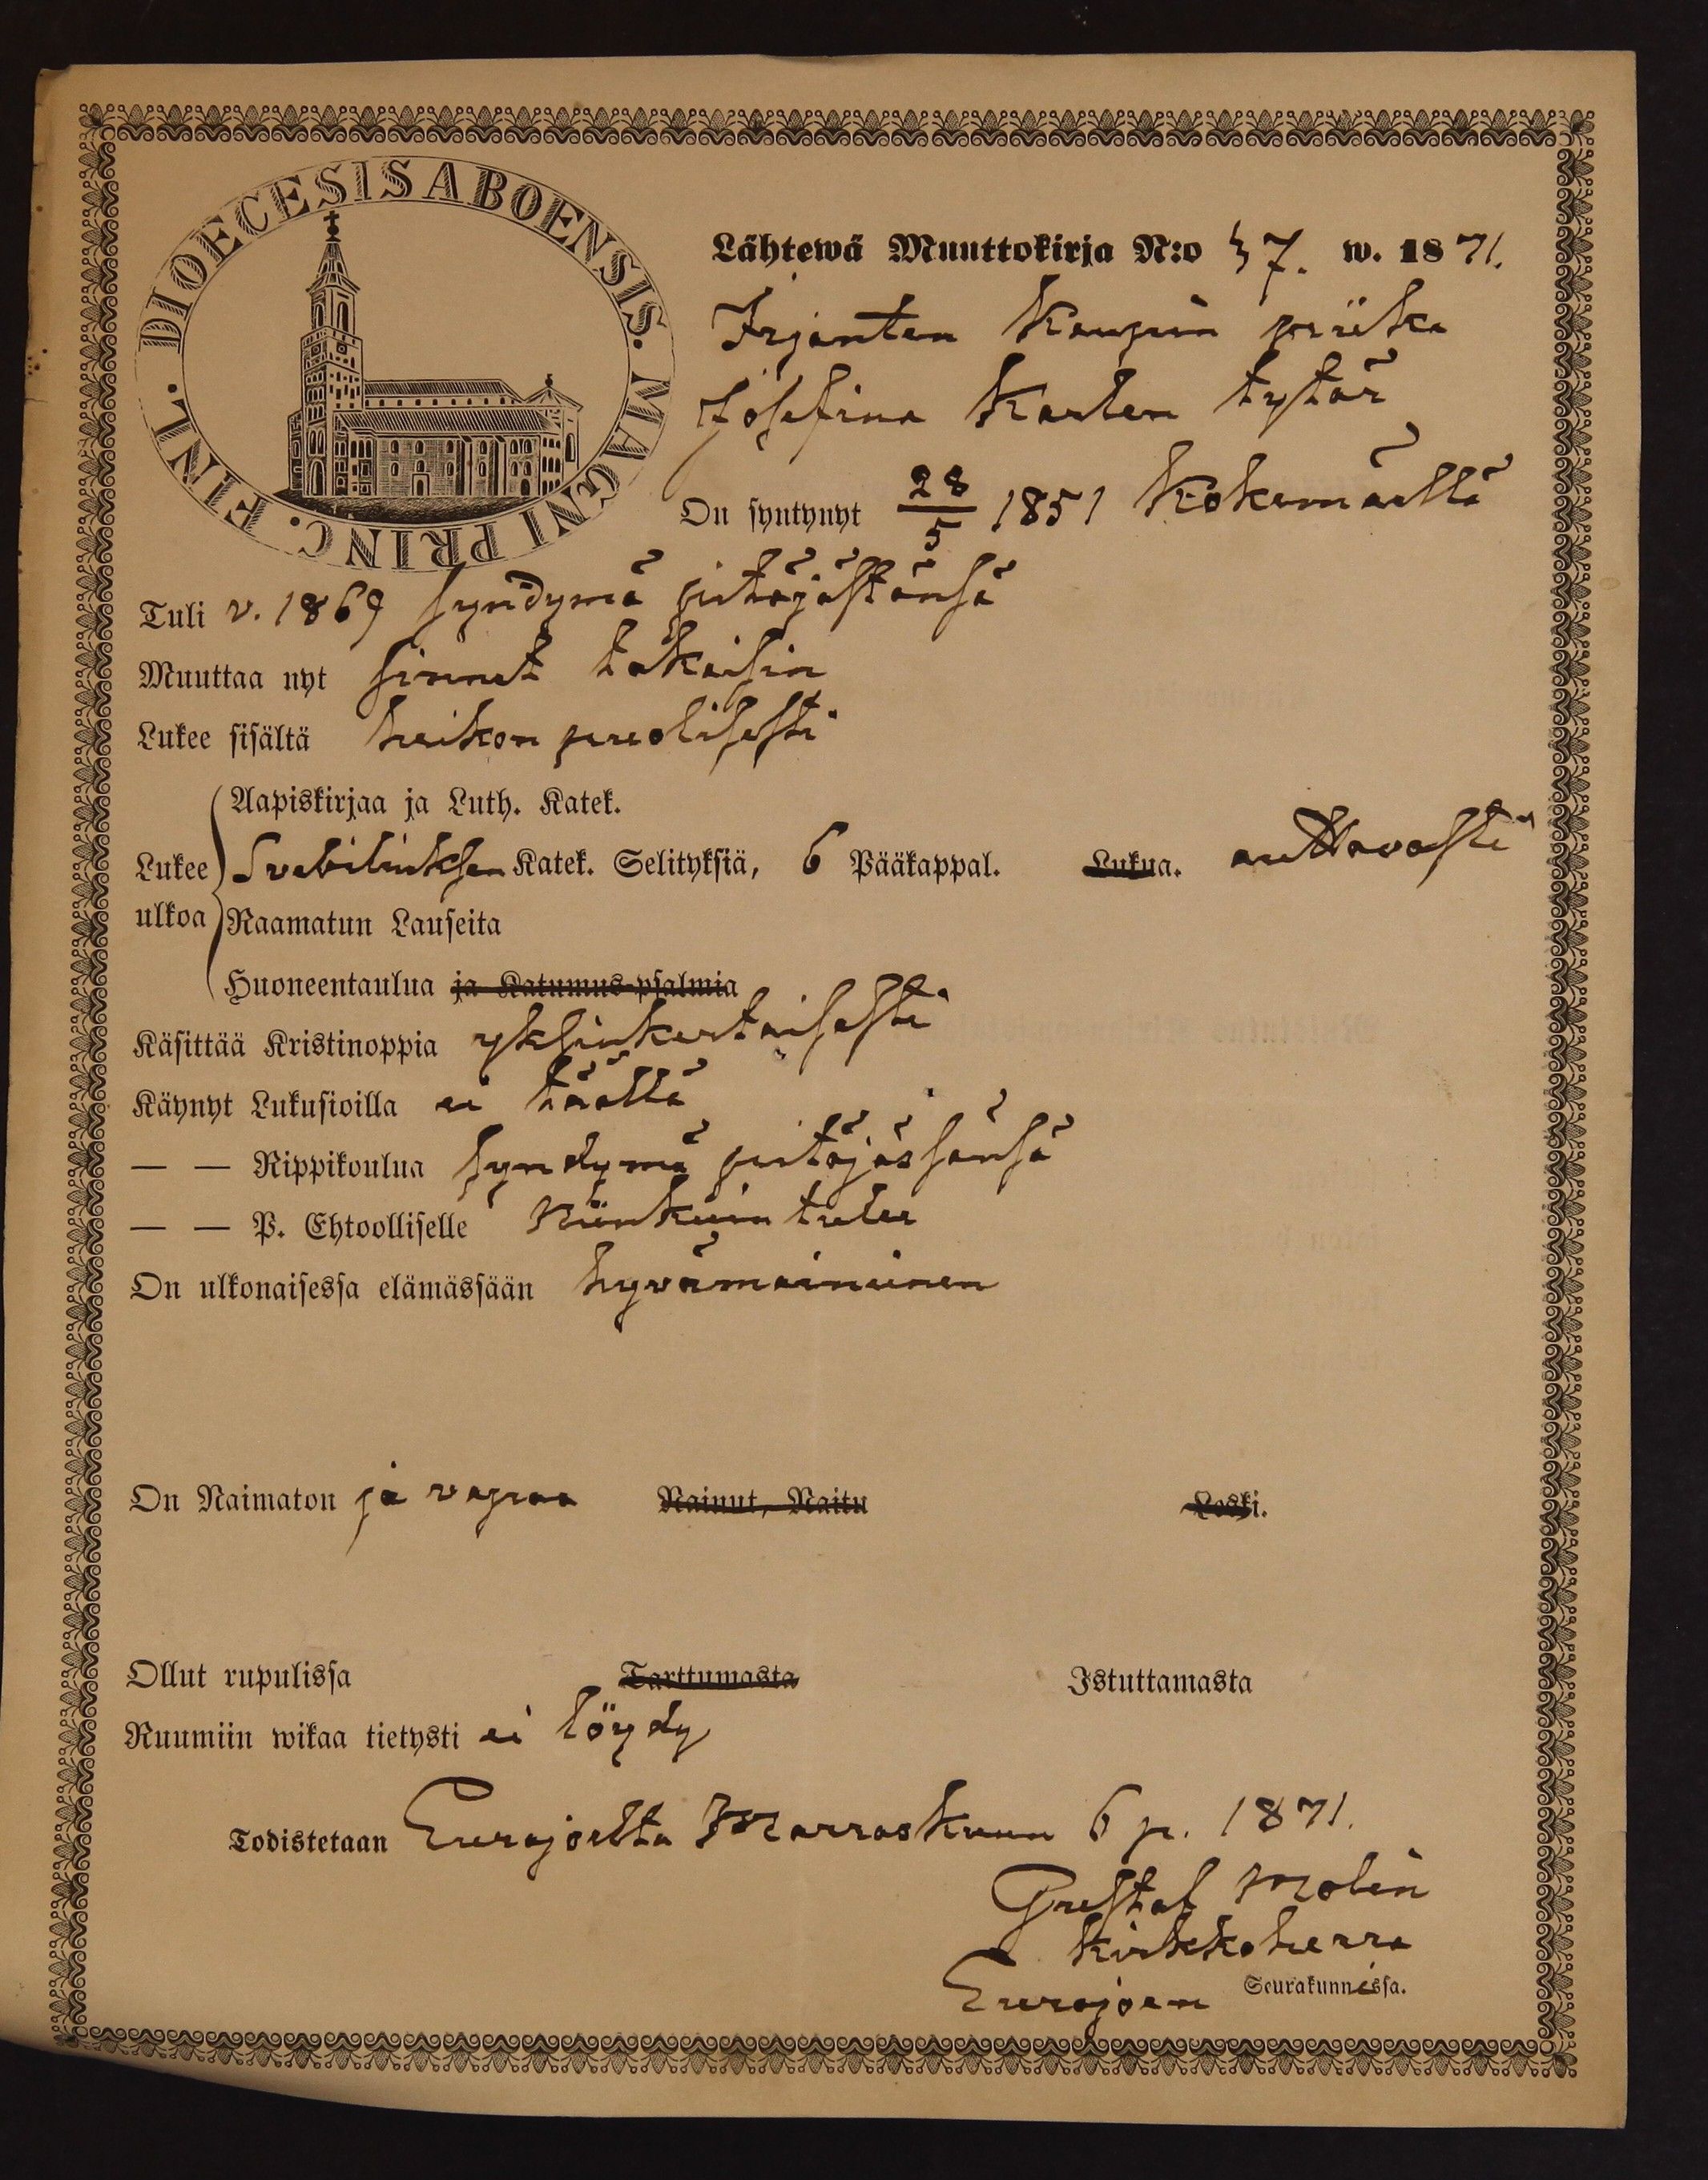 DIOECESIS ABOENSIS. MAGNI PRINC. FINL.
Lähtewä Muuttokirja N:o 57. w. 1871.
Irjanten Kaupin piika
Josefina Karlen tytär
On syntynyt 28/5 1851 Kokemäellä
Tuli v. 1869 syndymä pitäjästänsä
Muuttaa nyt sinnet takaisin
Lukee sisältä heikon puolisesti
Aapiskirjaa ja Luth. Katek.
Lukee Svebiliuksen Katek. Selityksiä, 6 Pääkappal. Lukua. auttavasti
ulkoa Raamatun Lauseita
Huoneentaulua ja Katumus-psalmia
Käsittää Kristinoppia yksinkertaisesti
Käynyt Lukusioilla ei täällä
— — Rippikoulua syndymä pitäjässänsä
— — P. Ehtoolliselle niinkuin tulee
On ulkonaisessa elämässään hyvämaininen
On Naimaton ja vapaa Nainut, Naitu Leski.
Ollut rupulissa Tarttumasta Istuttamasta
Ruumiin wikaa tietysti ei löydy
Todistetaan Eurajoelta Marraskuun 6 p. 1871.
Gustaf Molin
Kirkkoherra
Eurajoen Seurakunnissa.